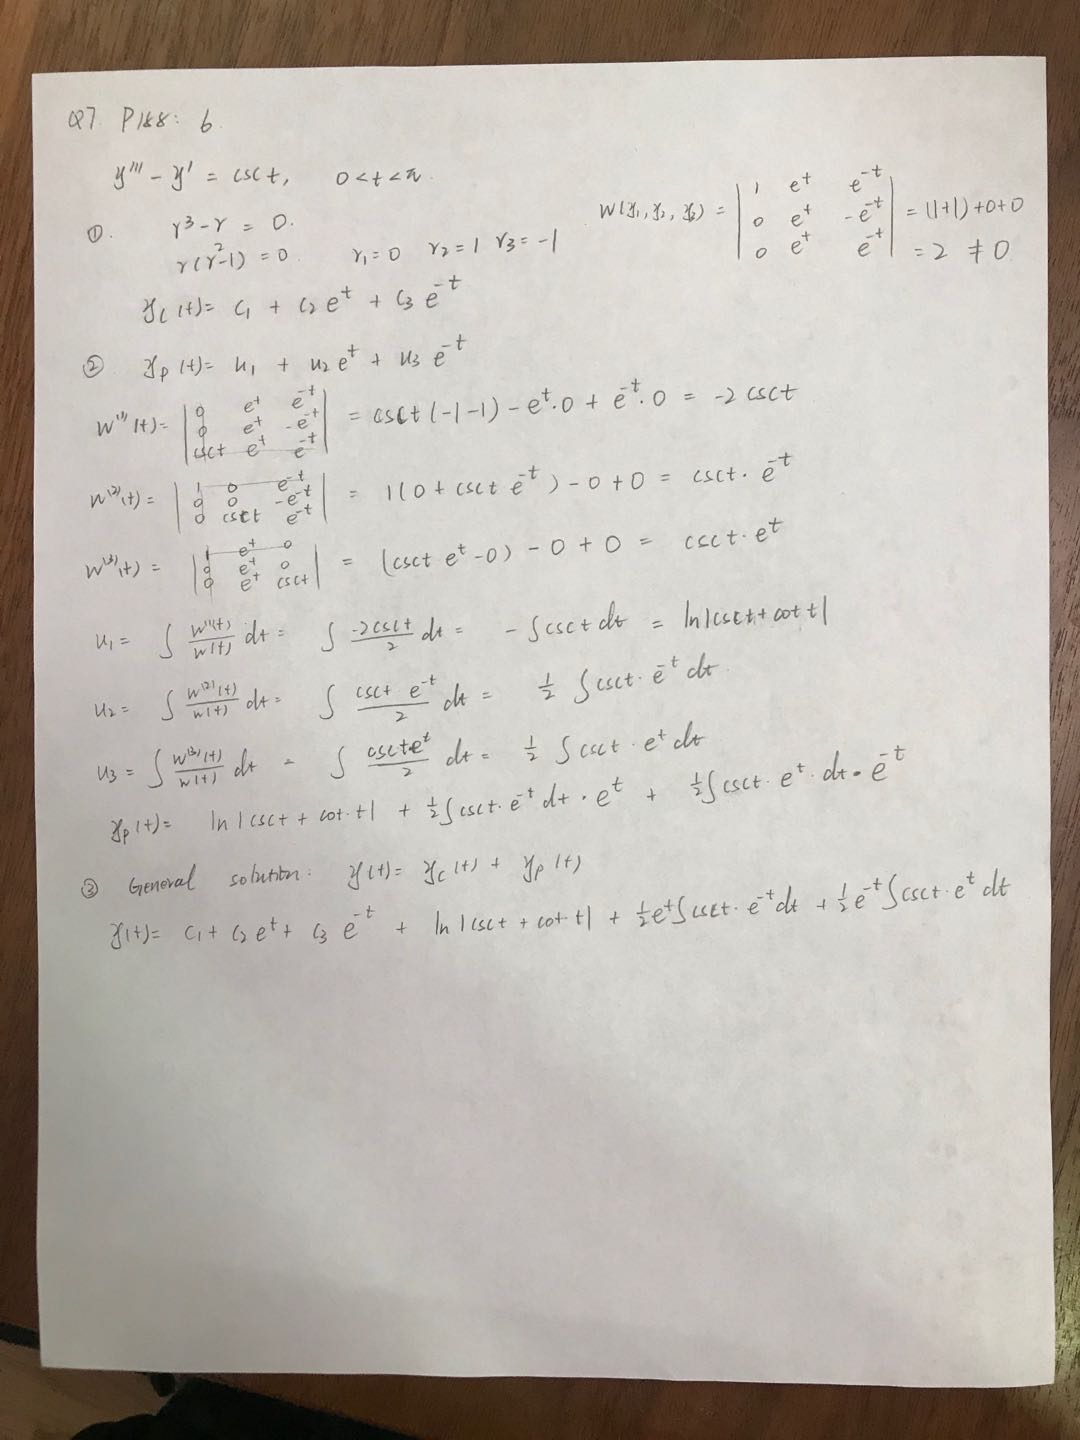 Q7. P188: 6.
y''' - y' = csct, 0<t<π.
① r³-r = 0.
r(r²-1) = 0. r₁=0 r₂=1 r₃=-1
W(y₁,y₂,y₃) = | 1 e^t e^-t | 0 e^t -e^-t | 0 e^t e^-t | = 1(1+1)+0+0
= 2 ≠ 0
y_c(t)= c₁ + c₂e^t + c₃e^-t
② y_p(t)= u₁ + u₂e^t + u₃e^-t
W^(1)(t)= | 0 e^t e^-t | 0 e^t -e^-t | csct e^t e^-t | = csct(-1-1) - e^t·0 + e^-t·0 = -2csct
W^(2)(t)= | 1 0 e^-t | 0 0 -e^-t | 0 csct e^-t | = 1(0+csct e^-t)-0+0 = csct·e^-t
W^(3)(t) = | 1 e^t 0 | 0 e^t 0 | 0 e^t csct | = (csct e^t-0) - 0 + 0 = csct·e^t
u₁= ∫ W^(1)(t)/W(t) dt= ∫ -2csct/2 dt= -∫csctdt = ln|csct+cott|
u₂= ∫ W^(2)(t)/W(t) dt= ∫ csct e^-t/2 dt= 1/2 ∫csct·e^-t dt.
u₃= ∫ W^(3)(t)/W(t) dt = ∫ csct·e^t/2 dt= 1/2 ∫csct·e^t dt
y_p(t)= ln|csct + cot·t| + 1/2∫csct·e^-t dt·e^t + 1/2∫csct·e^t·dt·e^-t
③ General solution: y(t)= y_c(t) + y_p(t)
y(t)= c₁+c₂e^t+ c₃e^-t + ln|csct+cot·t| + 1/2e^t∫csct·e^-t dt + 1/2e^-t∫csct·e^t dt